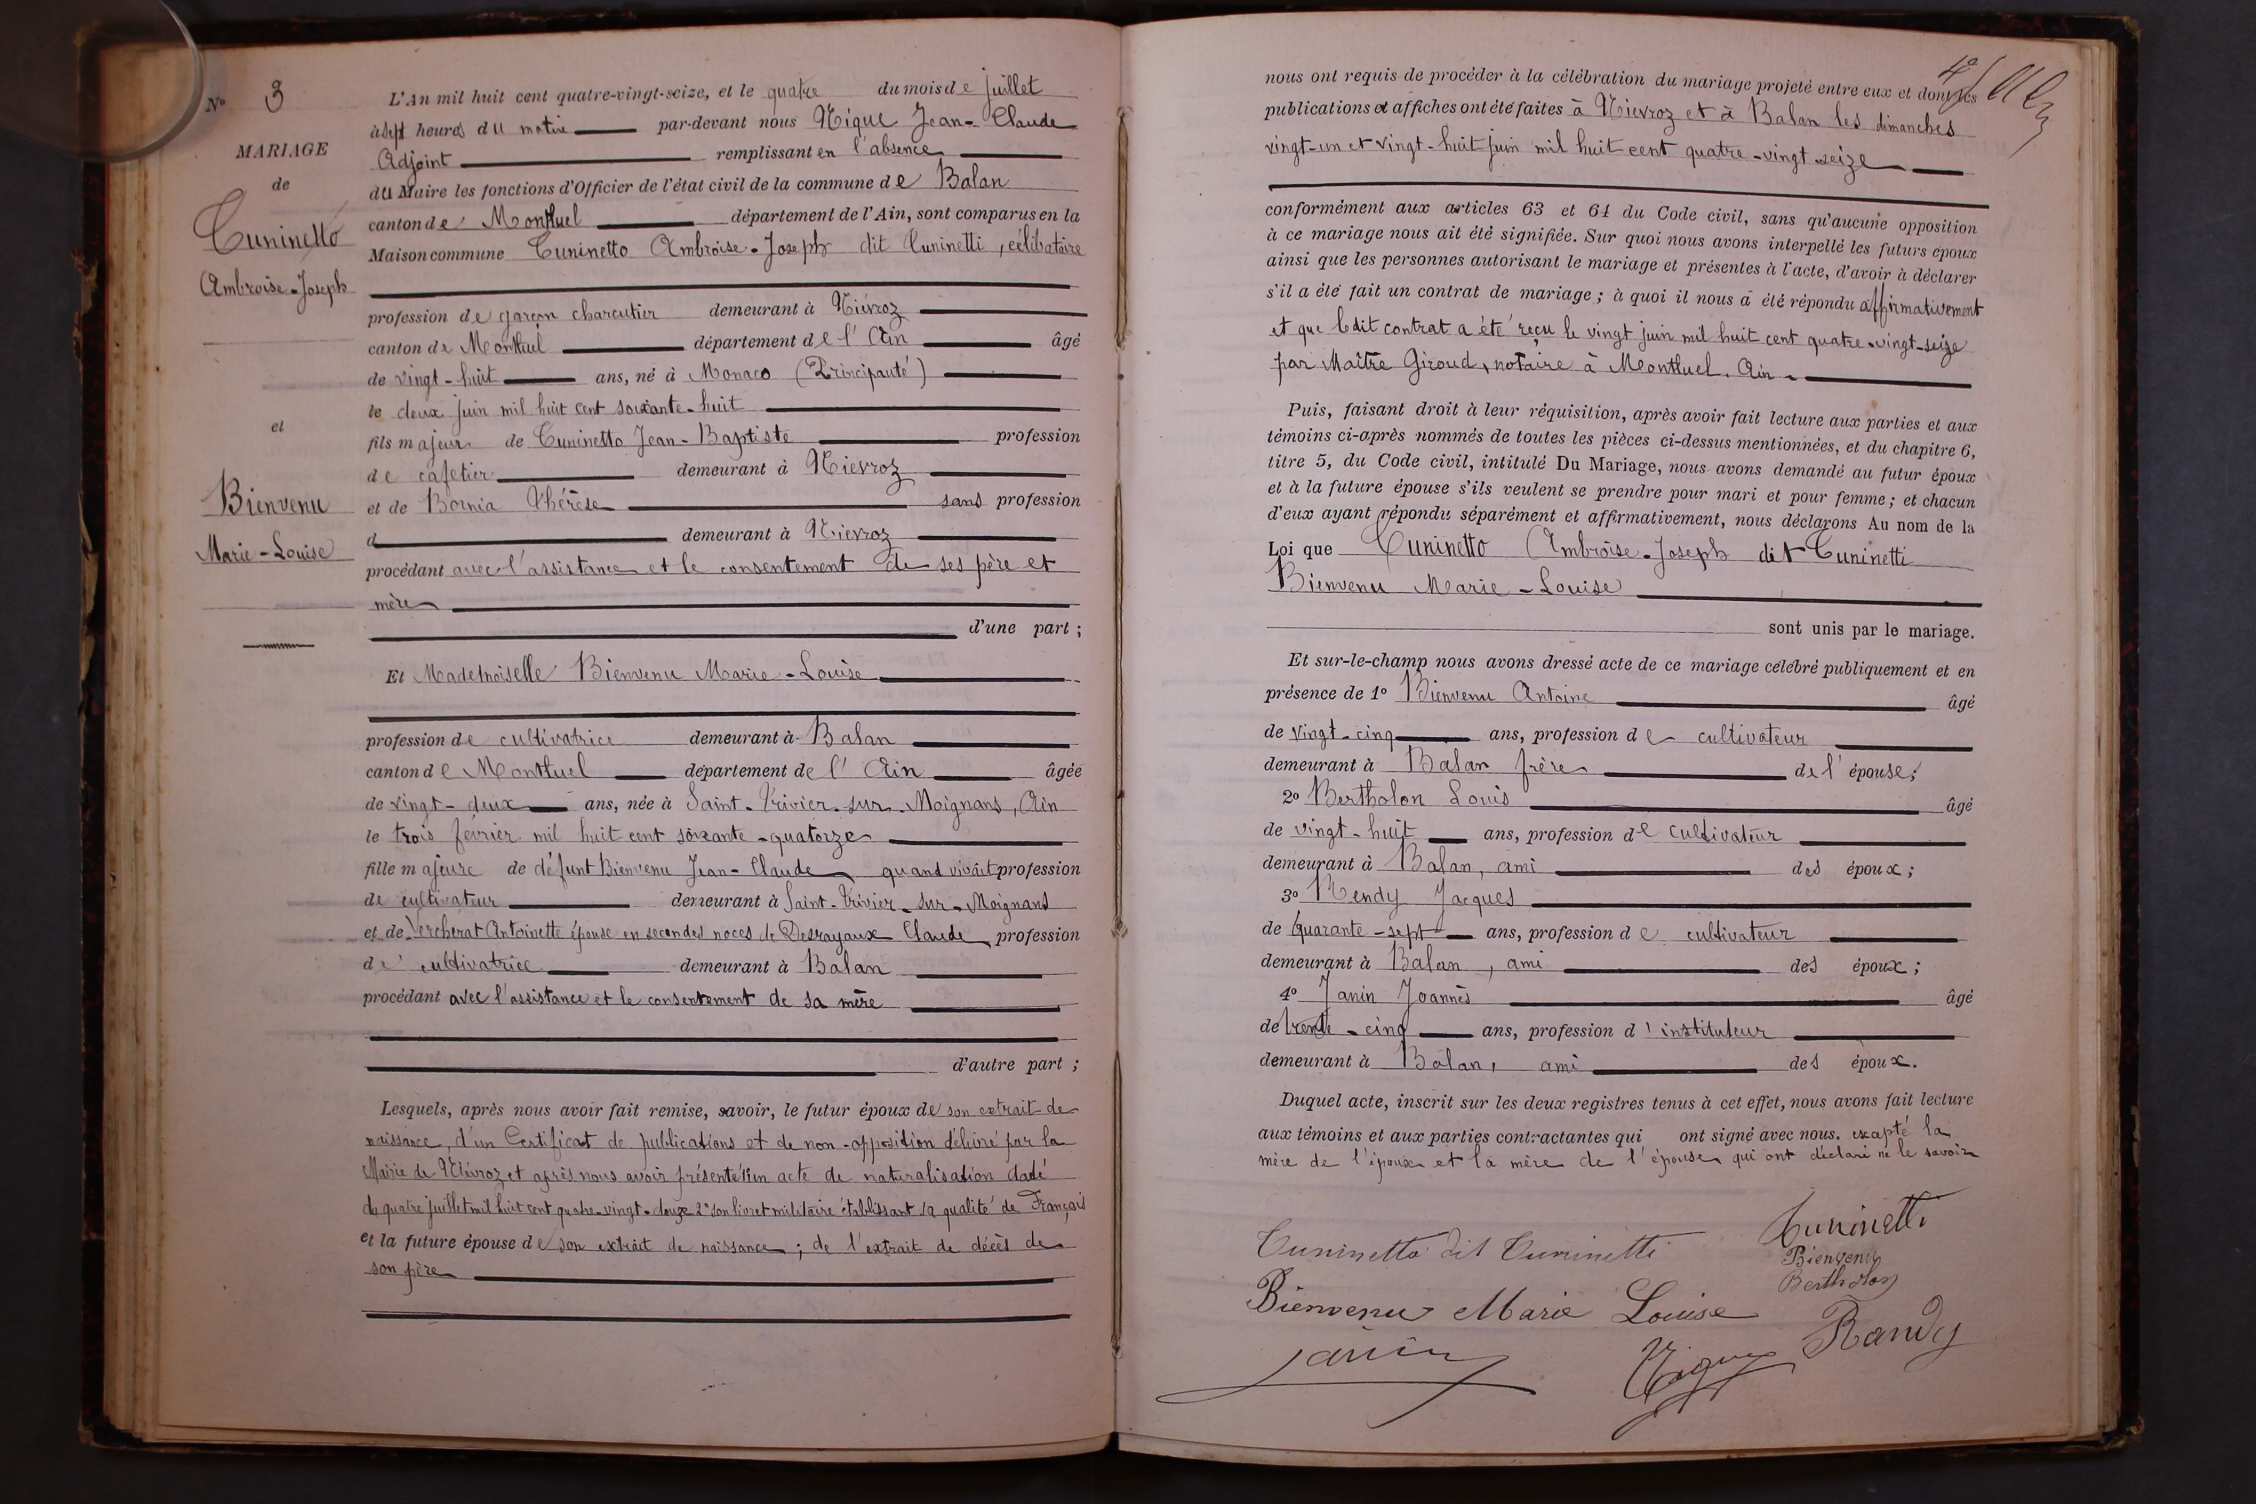 N° 3
MARIAGE
de
Cuninetto
Ambroise-Joseph
et
Bienvenu
Marie-Louise
L'An mil huit cent quatre-vingt-seize, et le quatre du mois de juillet
à sept heures du matin par-devant nous Nique Jean-Claude
Adjoint remplissant en l'absence
du Maire les fonctions d'Officier de l'état civil de la commune de Balan
canton de Montluel département de l'Ain, sont comparus en la
Maison commune Cuninetto Ambroise-Joseph dit Cuninetti, célibataire
profession de garçon charcutier demeurant à Niévroz
canton de Montluel département de l'Ain âgé
de vingt-huit ans, né à Monaco (Principauté)
le deux juin mil huit cent soixante-huit
fils majeur de Cuninetto Jean-Baptiste profession
de cafetier demeurant à Niévroz
et de Bornia Thérèse sans profession
d demeurant à Niévroz
procédant avec l'assistance et le consentement de ses père et
mère
d'une part ;
Et Mademoiselle Bienvenu Marie-Louise
profession de cultivatrice demeurant à Balan
canton de Montluel département de l'Ain âgée
de vingt-deux ans, née à Saint-Trivier-sur-Moignans, Ain
le trois février mil huit cent soixante-quatorze
fille majeure de défunt Bienvenu Jean-Claude quand vivait profession
de cultivateur demeurant à Saint-Trivier-sur-Moignans
et de Vercherat Antoinette épouse en secondes noces de Desrayaux Claude profession
de cultivatrice demeurant à Balan
procédant avec l'assistance et le consentement de sa mère
d'autre part ;
Lesquels, après nous avoir fait remise, savoir, le futur époux de son extrait de
naissance, d'un Certificat de publications et de non-opposition délivré par la
Mairie de Niévroz et après nous avoir présenté 1° un acte de naturalisation daté
du quatre juillet mil huit cent quatre-vingt-douze 2° son livret militaire établissant sa qualité de Français
et la future épouse de son extrait de naissance ; de l'extrait de décès de
son père
nous ont requis de procéder à la célébration du mariage projeté entre eux et dont les
publications et affiches ont été faites à Niévroz et à Balan les dimanches
vingt-un et vingt-huit juin mil huit cent quatre-vingt-seize
conformément aux articles 63 et 64 du Code civil, sans qu'aucune opposition
à ce mariage nous ait été signifiée. Sur quoi nous avons interpellé les futurs époux
ainsi que les personnes autorisant le mariage et présentes à l'acte, d'avoir à déclarer
s'il a été fait un contrat de mariage ; à quoi il nous a été répondu affirmativement
et que ledit contrat a été reçu le vingt juin mil huit cent quatre-vingt-seize
par Maître Giroud, notaire à Montluel. Ain.
Puis, faisant droit à leur réquisition, après avoir fait lecture aux parties et aux
témoins ci-après nommés de toutes les pièces ci-dessus mentionnées, et du chapitre 6,
titre 5, du Code civil, intitulé Du Mariage, nous avons demandé au futur époux
et à la future épouse s'ils veulent se prendre pour mari et pour femme ; et chacun
d'eux ayant répondu séparément et affirmativement, nous déclarons Au nom de la
Loi que Cuninetto Ambroise-Joseph dit Cuninetti
Bienvenu Marie-Louise
sont unis par le mariage.
Et sur-le-champ nous avons dressé acte de ce mariage célébré publiquement et en
présence de 1° Bienvenu Antoine âgé
de vingt-cinq ans, profession de cultivateur
demeurant à Balan frère de l'épouse ;
2° Bertholon Louis âgé
de vingt-huit ans, profession de cultivateur
demeurant à Balan, ami des époux ;
3° Rendy Jacques
de quarante-sept ans, profession de cultivateur
demeurant à Balan, ami des époux ;
4° Janin Joannès âgé
de trente-cinq ans, profession d'instituteur
demeurant à Balan, ami des époux.
Duquel acte, inscrit sur les deux registres tenus à cet effet, nous avons fait lecture
aux témoins et aux parties contractantes qui ont signé avec nous. excepté la
mère de l'époux et la mère de l'épouse qui ont déclaré ne le savoir
Cuninetto dit Cuninetti Cuninetti
Bienvenu
Bertholon
Bienvenu Marie Louise
Randy
Janin Nique